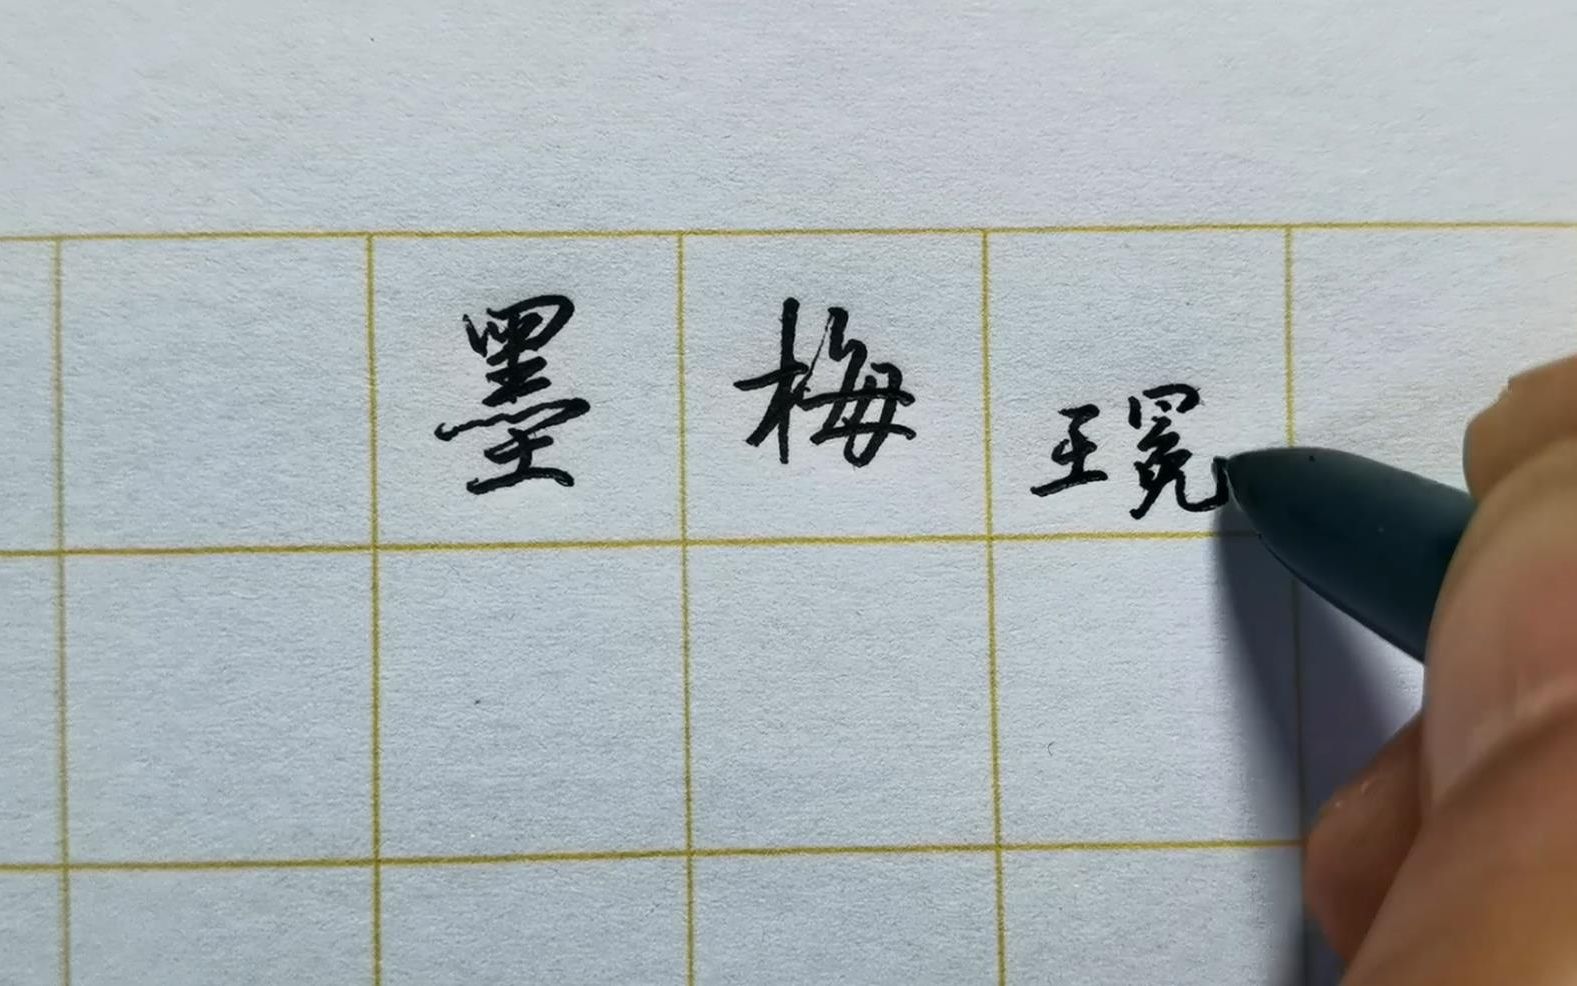 墨梅 王冕